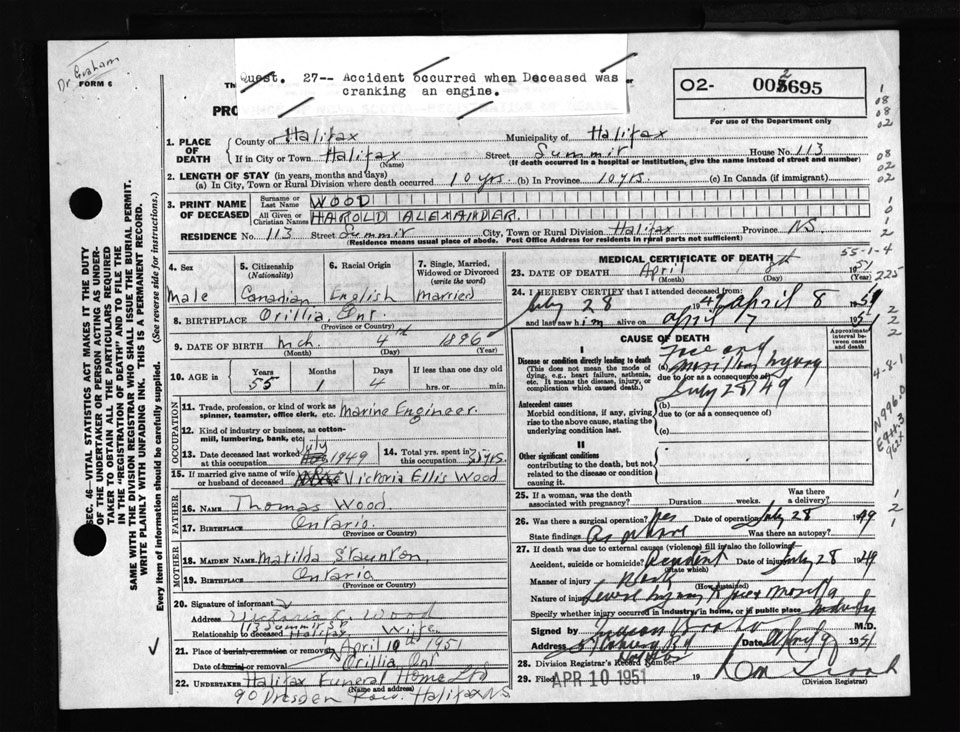 Dr Graham
FORM 6
Quest. 27-- Accident occurred when Deceased was
cranking an engine.
PRO
O2- 002695
For use of the Department only
1. PLACE OF DEATH
County of Halifax Municipality of Halifax
If in City or Town Halifax Street Summit House No. 113
(Name) (If death occurred in a hospital or institution, give the name instead of street and number)
2. LENGTH OF STAY (in years, months and days)
(a) In City, Town or Rural Division where death occurred 10 yrs. (b) In Province 10 yrs. (c) In Canada (if immigrant)
3. PRINT NAME OF DECEASED
Surname or Last Name WOOD
All Given or Christian Names HAROLD ALEXANDER.
RESIDENCE No. 113 Street Summit City, Town or Rural Division Halifax Province N.S.
(Residence means usual place of abode. Post Office Address for residents in rural parts not sufficient)
4. Sex Male
5. Citizenship (Nationality) Canadian
6. Racial Origin English
7. Single, Married, Widowed or Divorced (write the word) Married
8. BIRTHPLACE Orillia, Ont.
(Province or Country)
9. DATE OF BIRTH Mch. 4th 1896
(Month) (Day) (Year)
10. AGE in Years 55 Months 1 Days 4 If less than one day old
hrs. or min.
OCCUPATION
11. Trade, profession, or kind of work as spinner, teamster, office clerk, etc. Marine Engineer.
12. Kind of industry or business, as cotton-mill, lumbering, bank, etc.
13. Date deceased last worked at this occupation July 1949
14. Total yrs. spent in this occupation 35 yrs.
15. If married give name of wife or husband of deceased Victoria Ellis Wood
FATHER
16. NAME Thomas Wood
17. BIRTHPLACE Ontario.
(Province or Country)
MOTHER
18. MAIDEN NAME Matilda Staunton
19. BIRTHPLACE Ontario
(Province or Country)
20. Signature of informant Victoria E. Wood
Address 113 Summit St Halifax
Relationship to deceased Wife
21. Place of burial, cremation or removal Orillia, Ont
Date of burial or removal April 10th 1951
22. UNDERTAKER Halifax Funeral Home Ltd
(Name and address)
90 Dresden Row. Halifax N.S.
MEDICAL CERTIFICATE OF DEATH
23. DATE OF DEATH April 8th 1951
(Month) (Day) (Year)
24. I HEREBY CERTIFY that I attended deceased from:
July 28 1949 April 8 1951
and last saw him alive on April 7 1951
CAUSE OF DEATH
Approximate interval between onset and death
I
Disease or condition directly leading to death
(This does not mean the mode of dying, e.g., heart failure, asthenia, etc. It means the disease, injury, or complication which caused death.)
(a) Face and maxillary injury
due to (or as a consequence of) July 28/49
Antecedent causes
Morbid conditions, if any, giving rise to the above cause, stating the underlying condition last.
(b)
due to (or as a consequence of)
(c)
II
Other significant conditions
contributing to the death, but not related to the disease or condition causing it.
25. If a woman, was the death associated with pregnancy? Duration weeks. Was there a delivery?
26. Was there a surgical operation? yes Date of operation July 28 1949
State findings as above Was there an autopsy?
27. If death was due to external causes (violence) fill in also the following:
Accident, suicide or homicide? Accident Date of injury July 28 1949
(State which)
Manner of injury Work
(How sustained)
Nature of injury Severe injury to face & maxilla
Specify whether injury occurred in industry, in home, or in public place Industry
Signed by M.D.
Address Date April 9 1951
28. Division Registrar's Record Number
29. Filed APR 10 1951 19
(Division Registrar)
SEC. 46—VITAL STATISTICS ACT MAKES IT THE DUTY
OF THE UNDERTAKER OR PERSON ACTING AS UNDER-
TAKER TO OBTAIN ALL THE PARTICULARS REQUIRED
IN THE "REGISTRATION OF DEATH" AND TO FILE THE
SAME WITH THE DIVISION REGISTRAR WHO SHALL ISSUE THE BURIAL PERMIT.
WRITE PLAINLY WITH UNFADING INK. THIS IS A PERMANENT RECORD.
Every item of information should be carefully supplied. (See reverse side for instructions.)
1
08
08
02
08
02
02
1
0
1
2
55-1-4
225
2
2
2
4-8-1
N996.0
E914.3
962x
1
2
1